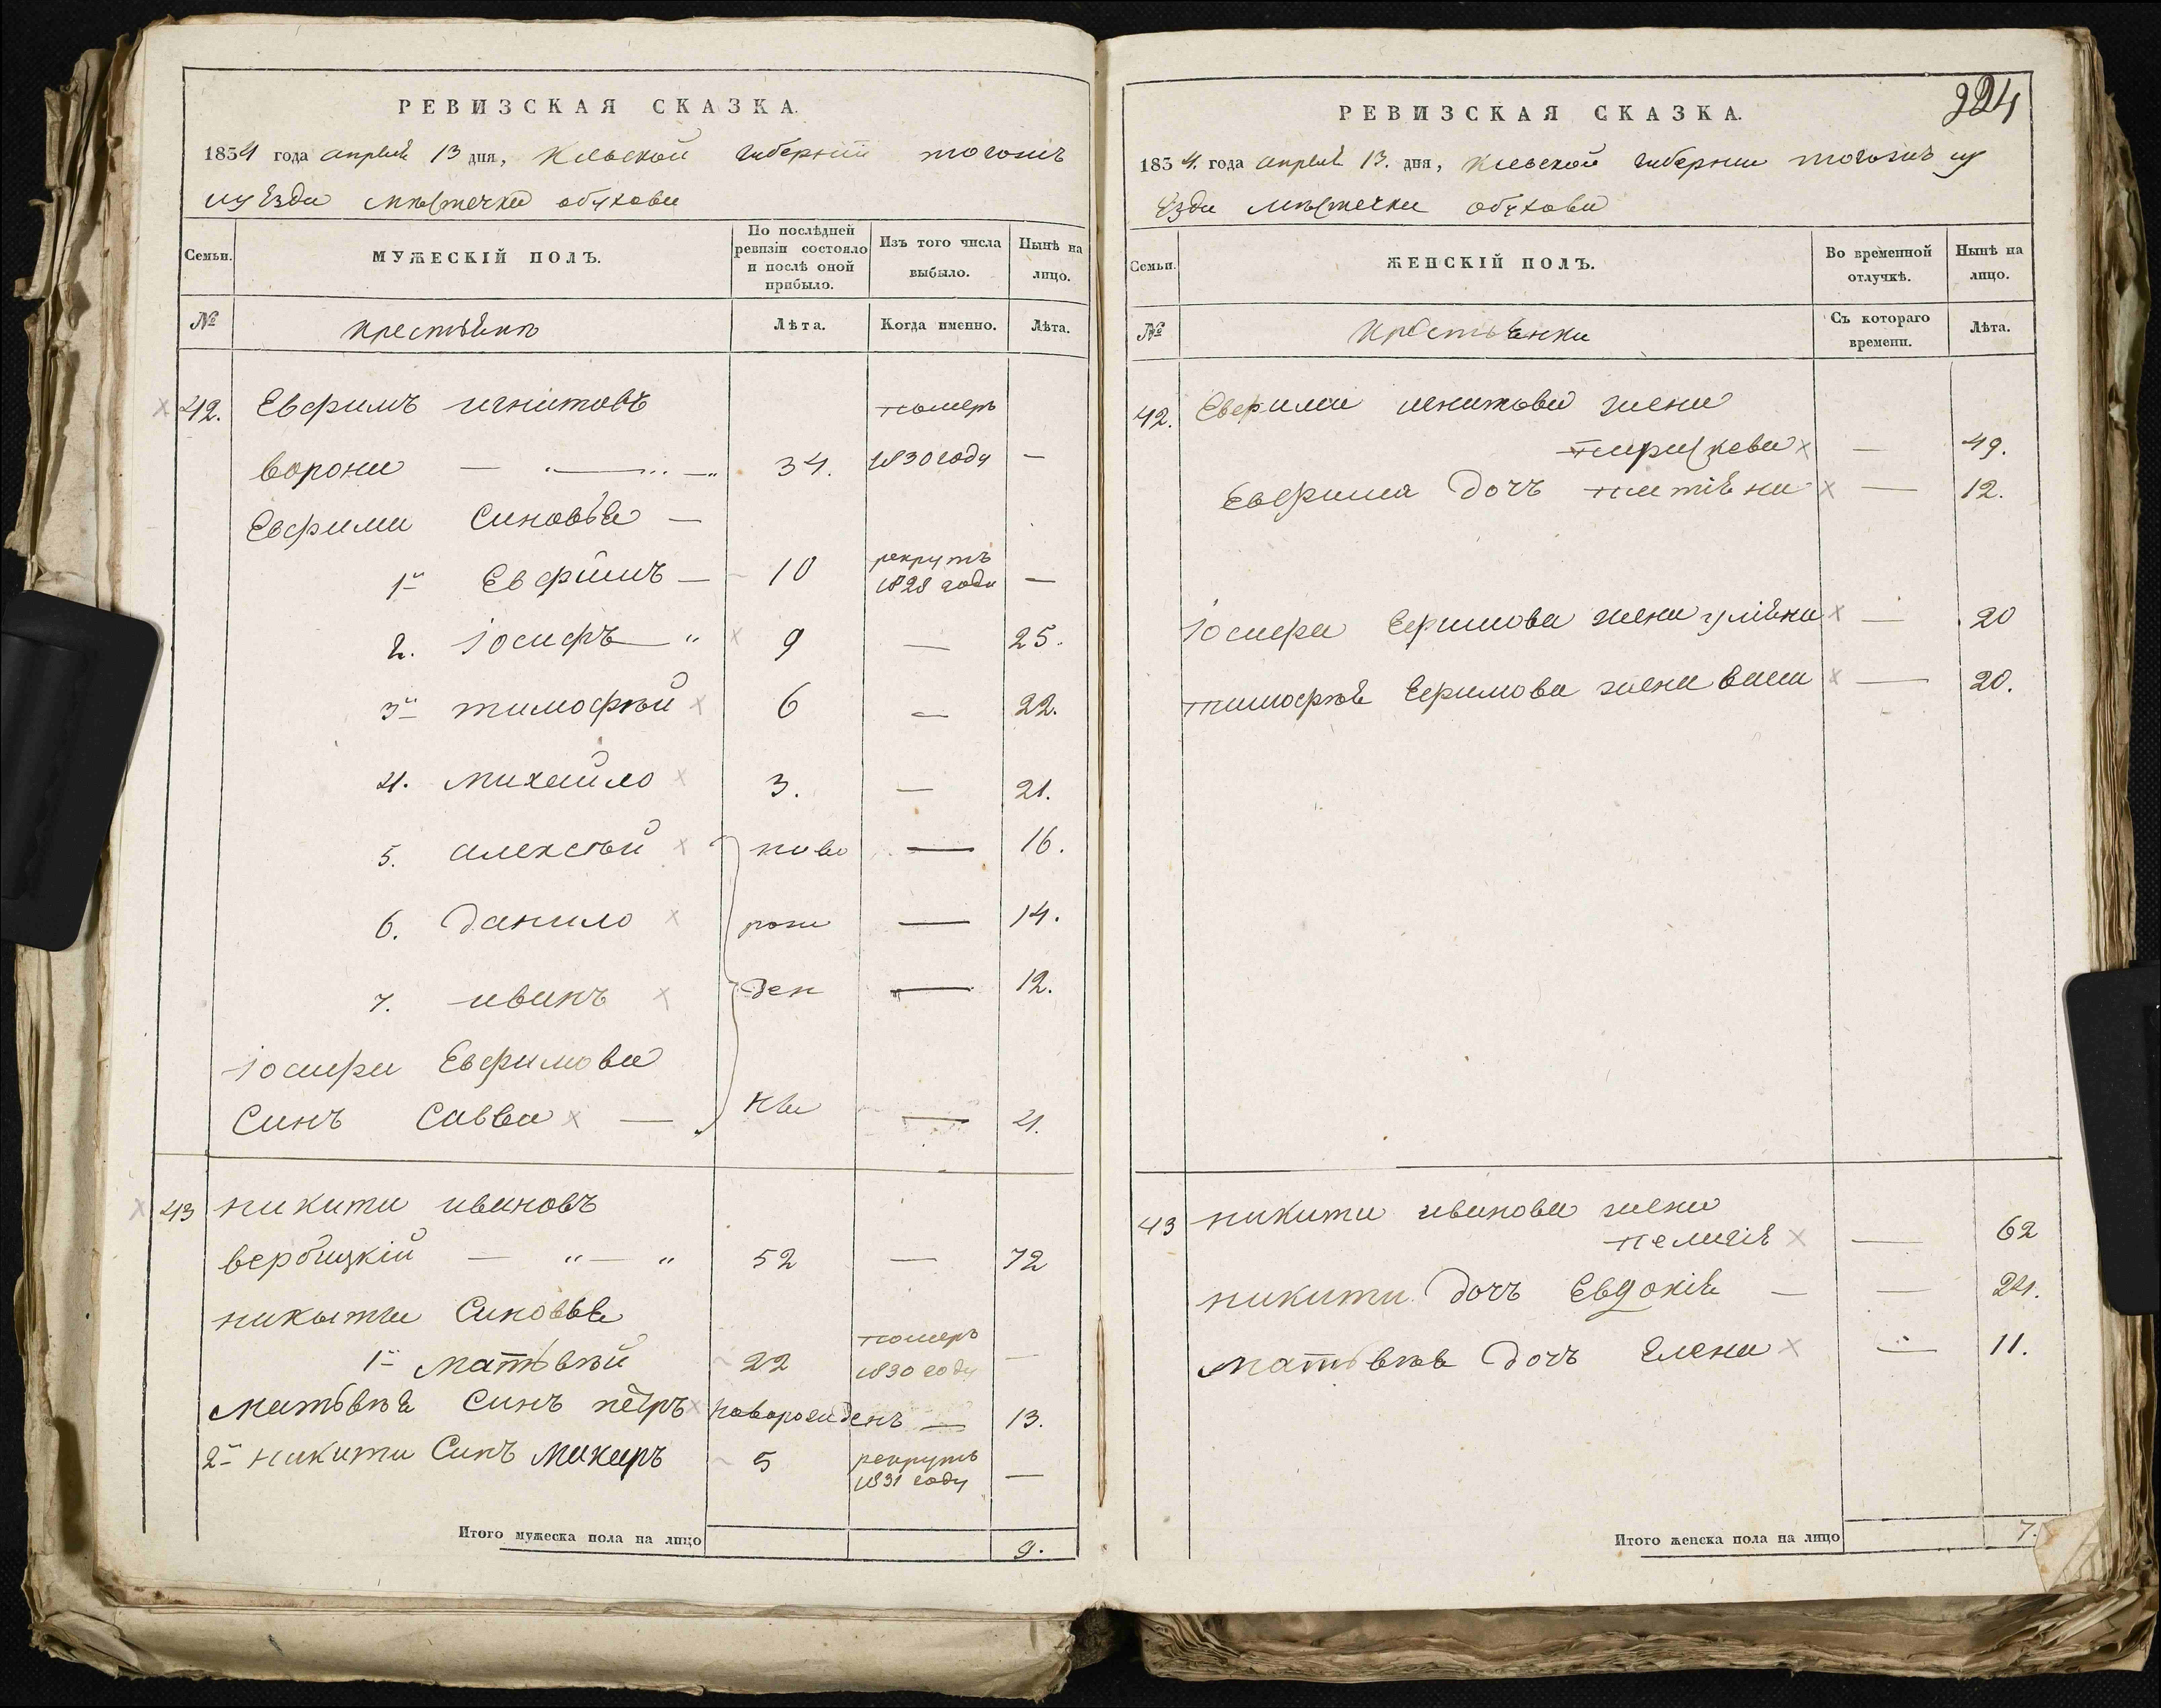 РЕВИЗСКАЯ СКАЗКА.
1834 года апрелѣ 13 дня, Кіевской губерніи тогожъ
уѣзда мѣстечка обухова
Семьи.
МУЖЕСКІЙ ПОЛЪ.
По послѣдней ревизіи состояло и послѣ оной прибыло.
Изъ того числа выбыло.
Нынѣ на лицо.
№ крестьѣнъ Лѣта. Когда именно. Лѣта.
42. Евфимъ игнатовъ померъ
ворона — 34. 1830 году —
Евфима Синовѣе —
1й Евфимъ — 10 рекрутъ 1828 года —
2. іосифъ 9 — 25.
3й тимофѣй 6 — 22.
4. михайло 3. — 21.
5. алексѣй ново — 16.
6. Данило рож — 14.
7. иванъ ден — 12.
іосифа Евфимова
Синъ Савва — — 4.
43 никита ивановъ
вербицкій — 52 — 72
никиты Синовѣе
1й матѣвѣй 22 померъ 1830 году —
матѣвѣѣ Синъ пётръ новорожденъ — 13.
2й никиты Синъ макаръ 5 рекрутъ 1831 году —
Итого мужеска пола на лицо 9.
924
РЕВИЗСКАЯ СКАЗКА.
1834. года апрелѣ 13. дня, Кіевской губерніи тогожъ у
ѣзда мѣстечка обухова
Семьи.
ЖЕНСКІЙ ПОЛЪ.
Во временной отлучкѣ.
Нынѣ на лицо.
№ крестьѣнки Съ котораго времени. Лѣта.
42. Евфима игнатова жена
параскева — 49.
Евфима дочъ — 12.
іосифа Ефимова жена улиѣна — 20
тимофѣѣ Ефимова жена — 20.
43 никиты иванова жена
пелагіѣ — 62
никиты дочъ Евдокіѣ — — 24.
матѣвѣѣ дочъ Елена — 11.
Итого женска пола на лицо 7.